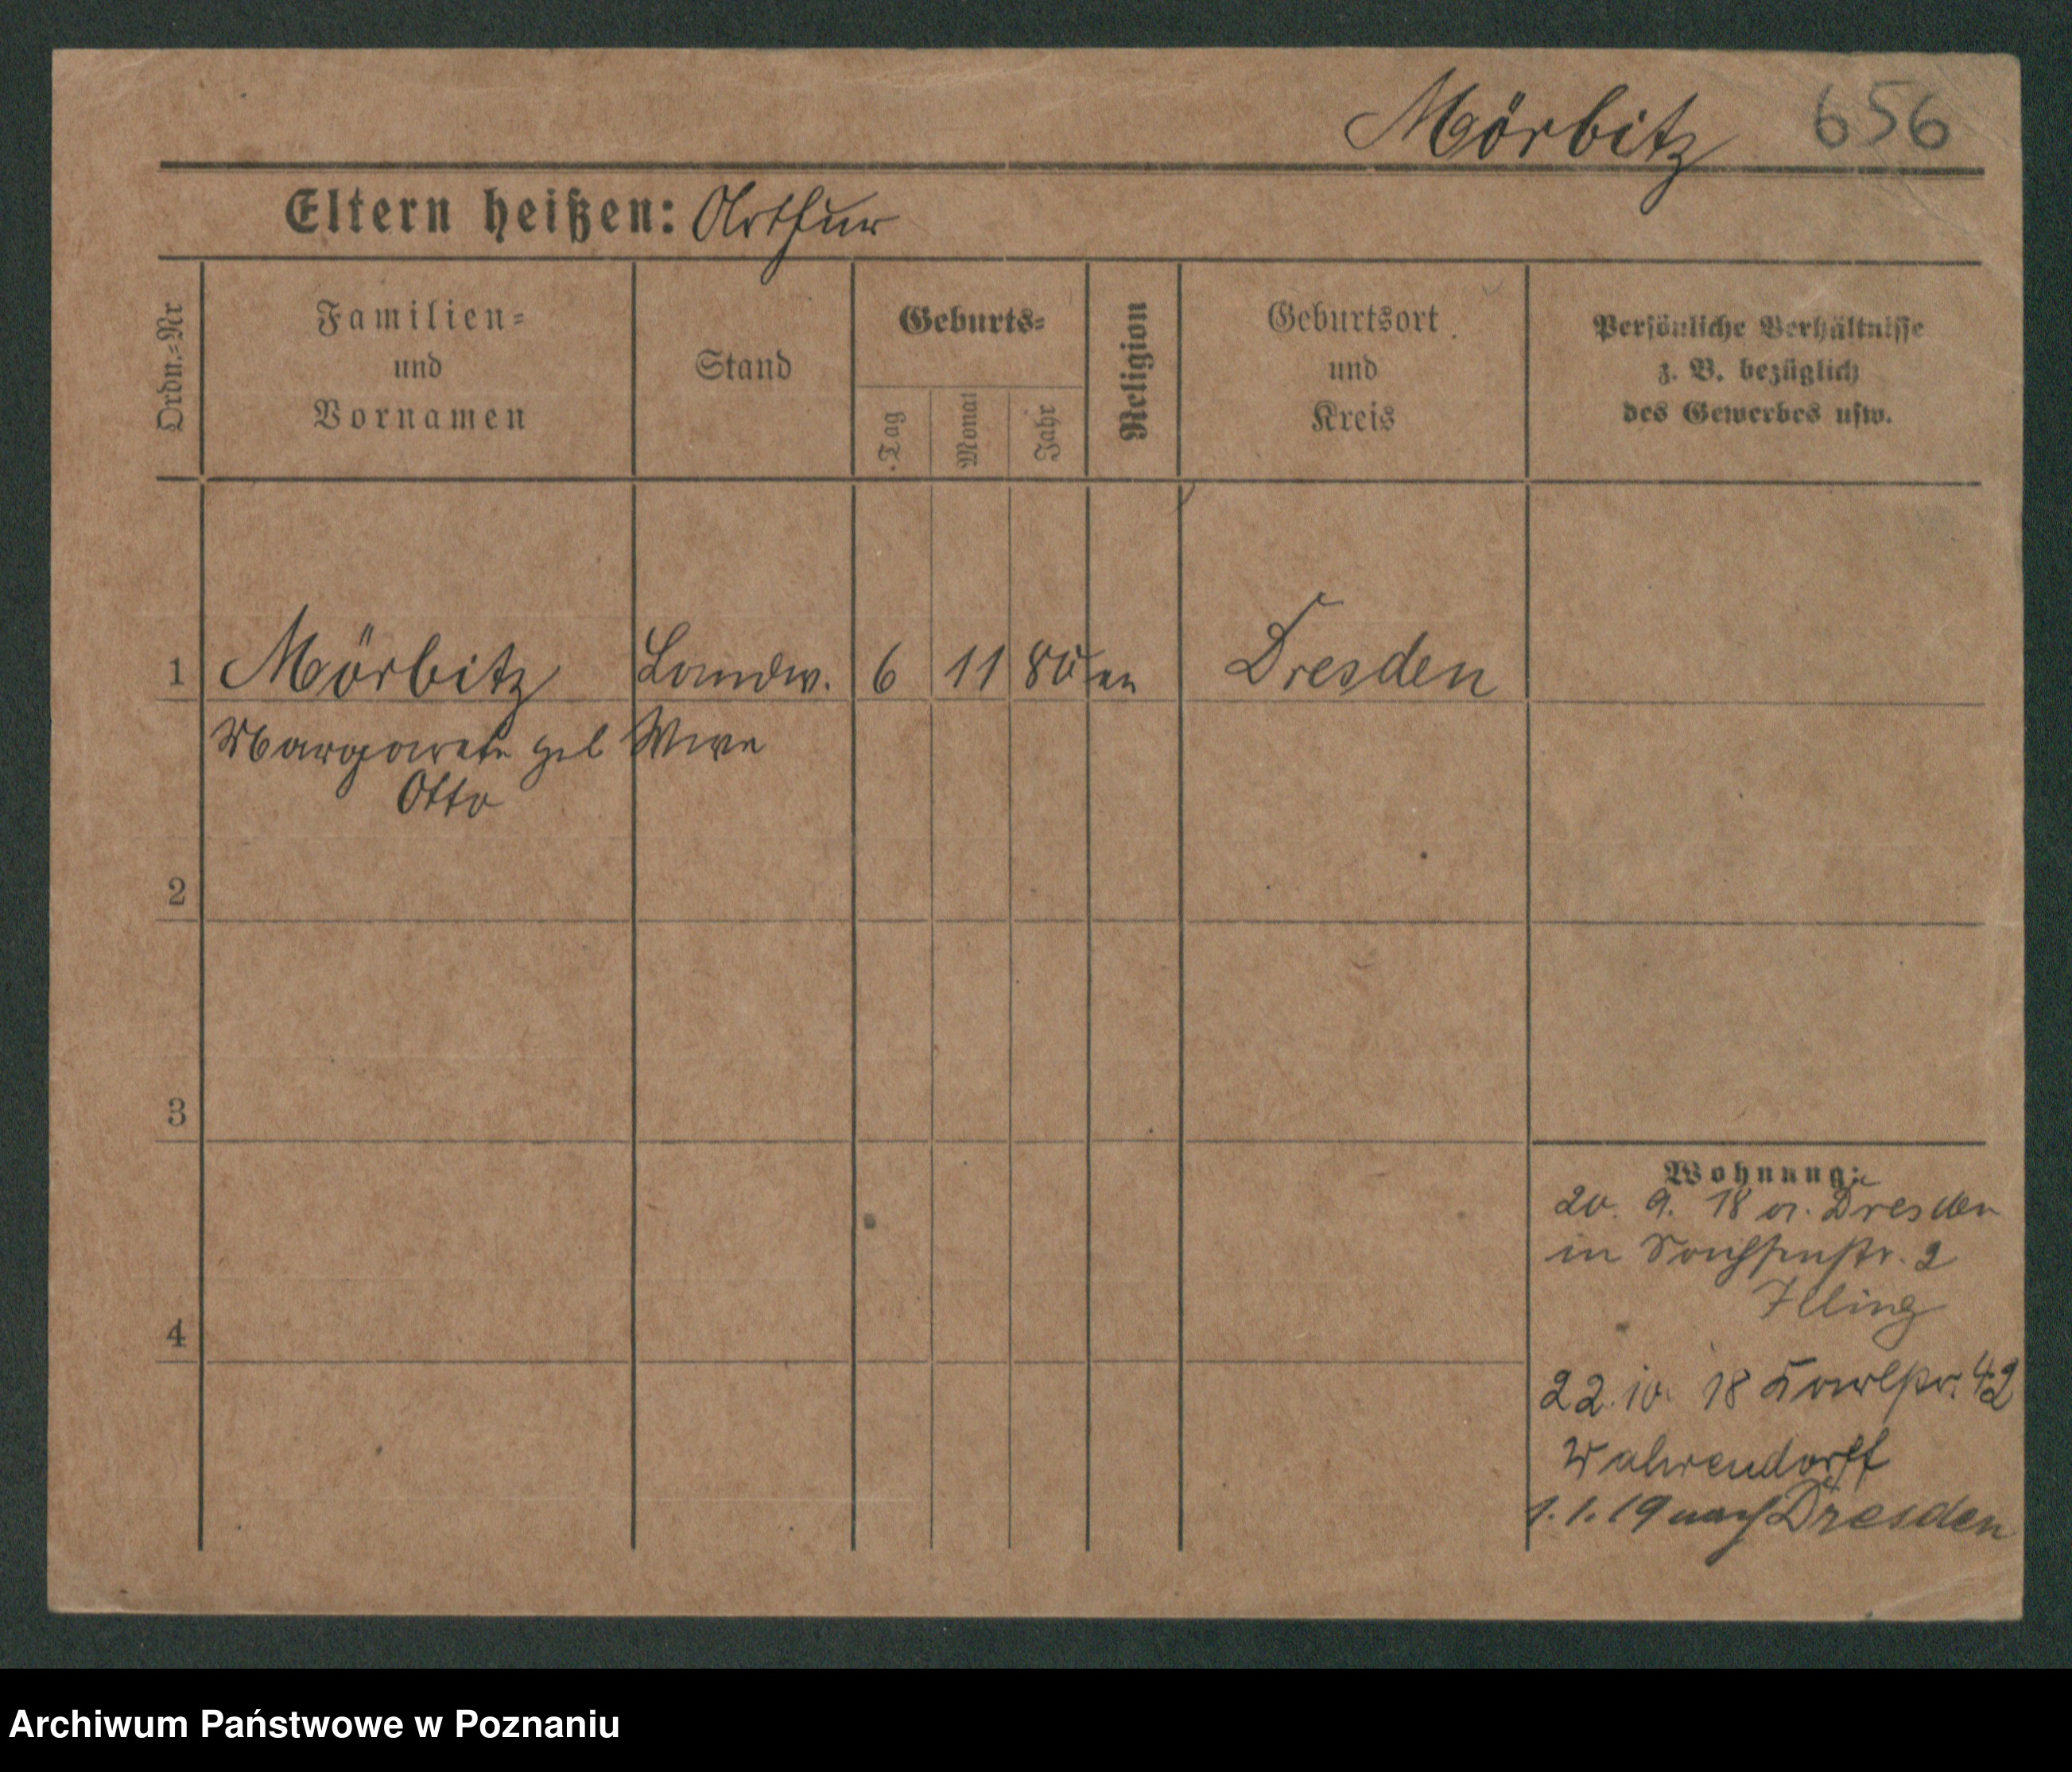 Mörbitz 656
Eltern heißen: Arthur
Ordn.=Nr
Familien=
und
Vornamen
Stand
Geburts=
Tag
Monat
Jahr
Religion
Geburtsort
und
Kreis
Persönliche Verhältnisse
z. B. bezüglich
des Gewerbes usw.
1 Mörbitz Landw. 6 11 80 ev Dresden
Margarete geb Wwe
Otto
2
3
4
Wohnung:
20. 9. 18 v. Dresden
in 2
Illing
22. 10. 18 Karlstr. 42
Wahrendorff
1. 1. 19 nach Dresden
Archiwum Państwowe w Poznaniu